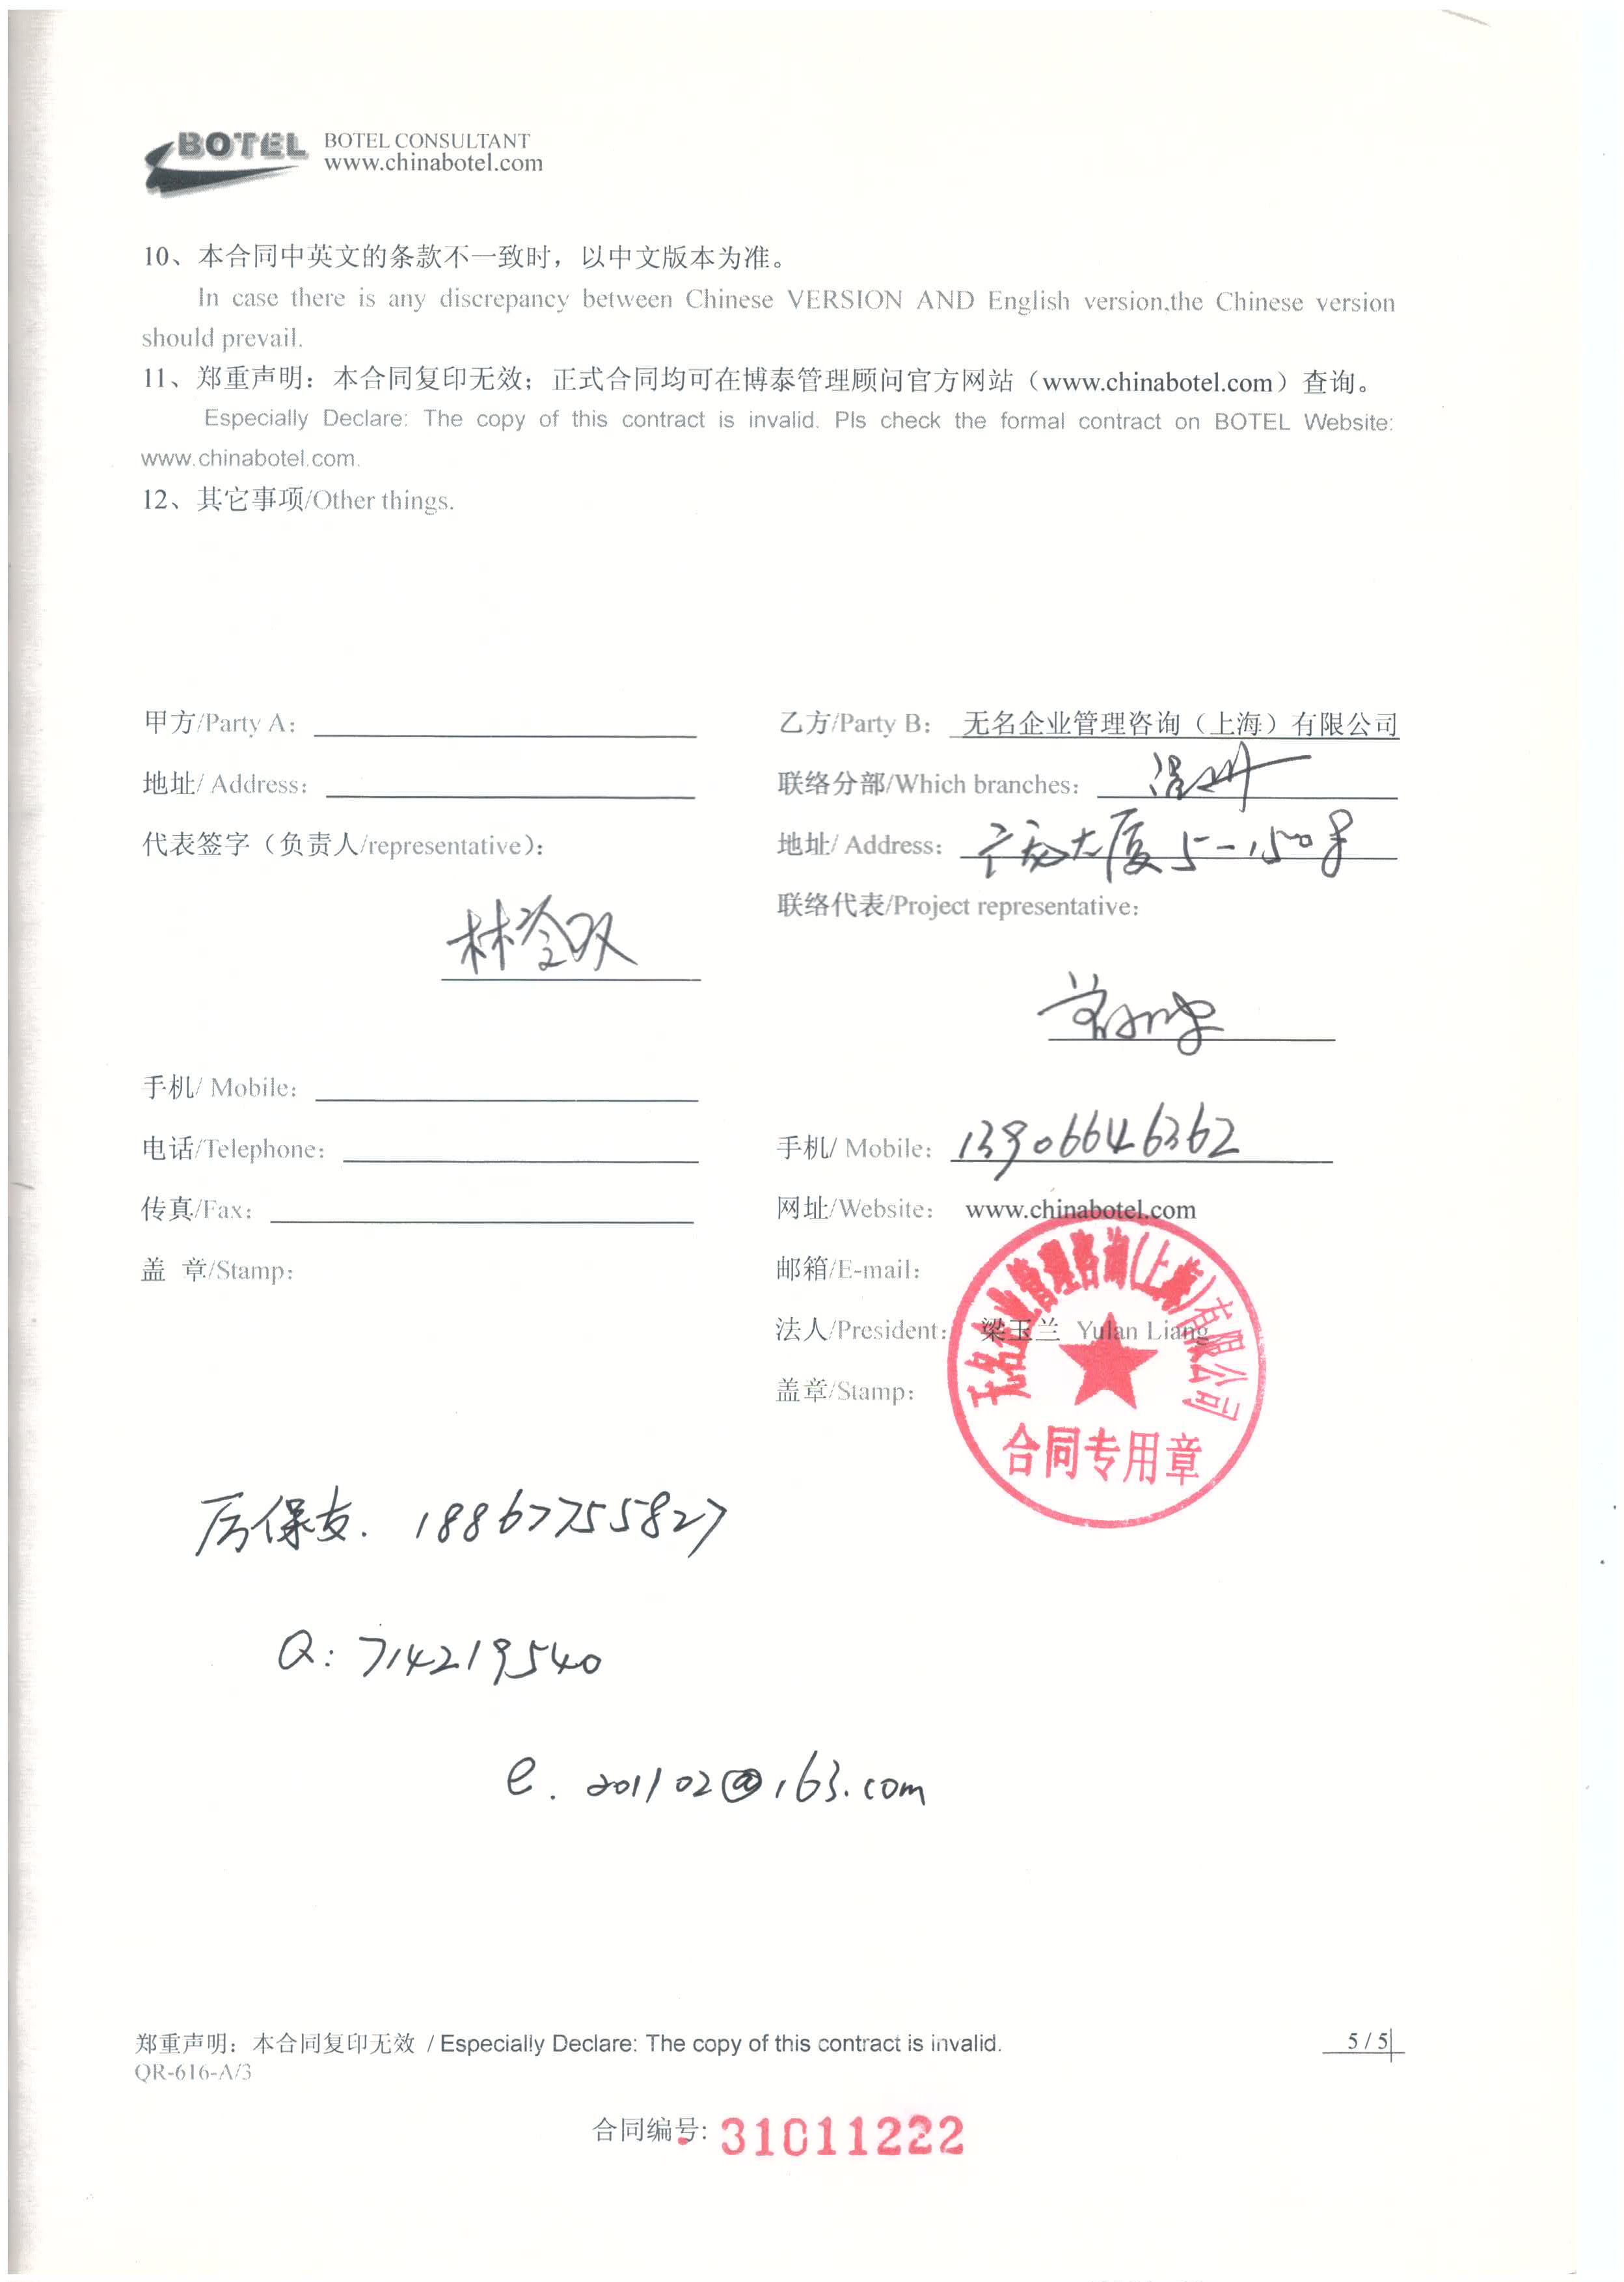 BOTEL BOTEL CONSULTANT
www.chinabotel.com
10、本合同中英文的条款不一致时，以中文版本为准。
In case there is any discrepancy between Chinese VERSION AND English version,the Chinese version
should prevail.
11、郑重声明：本合同复印无效；正式合同均可在博泰管理顾问官方网站（www.chinabotel.com）查询。
Especially Declare: The copy of this contract is invalid. Pls check the formal contract on BOTEL Website:
www.chinabotel.com.
12、其它事项/Other things.
甲方/Party A： 乙方/Party B： 无名企业管理咨询（上海）有限公司
地址/ Address： 联络分部/Which branches： 温州
代表签字（负责人/representative）： 地址/ Address： 大厦 5-1508
联络代表/Project representative：
手机/ Mobile：
电话/Telephone： 手机/ Mobile： 13906646362
传真/Fax： 网址/Website： www.chinabotel.com
盖 章/Stamp： 邮箱/E-mail：
法人/President： 梁玉兰 Yulan Liang
盖章/Stamp：
无名企业管理咨询(上海)有限公司
合同专用章
厉保友. 18867755827
Q: 714219540
e. 201102@163.com
郑重声明：本合同复印无效 / Especially Declare: The copy of this contract is invalid. 5 / 5
QR-616-A/3
合同编号: 31011222